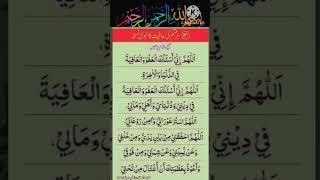 بسم الله الرحمن الرحيم
اَللّٰهُمَّ اِنِّيْ اَسْئَلُكَ الْعَفْوَ وَالْعَافِيَةَ
فِي الدُّنْيَا وَالْاٰخِرَةِ
اَللّٰهُمَّ اِنِّيْ اَسْئَلُكَ الْعَفْوَ وَالْعَافِيَةَ
فِيْ دِيْنِيْ وَدُنْيَايَ وَاَهْلِيْ وَمَالِيْ
اَللّٰهُمَّ اسْتُرْ عَوْرَاتِيْ وَاٰمِنْ رَوْعَاتِيْ
اَللّٰهُمَّ احْفَظْنِيْ مِنْ بَيْنِ يَدَيَّ وَمِنْ خَلْفِيْ
وَعَنْ يَّمِيْنِيْ وَعَنْ شِمَالِيْ وَمِنْ فَوْقِيْ
وَاَعُوْذُ بِعَظَمَتِكَ اَنْ اُغْتَالَ مِنْ تَحْتِيْ